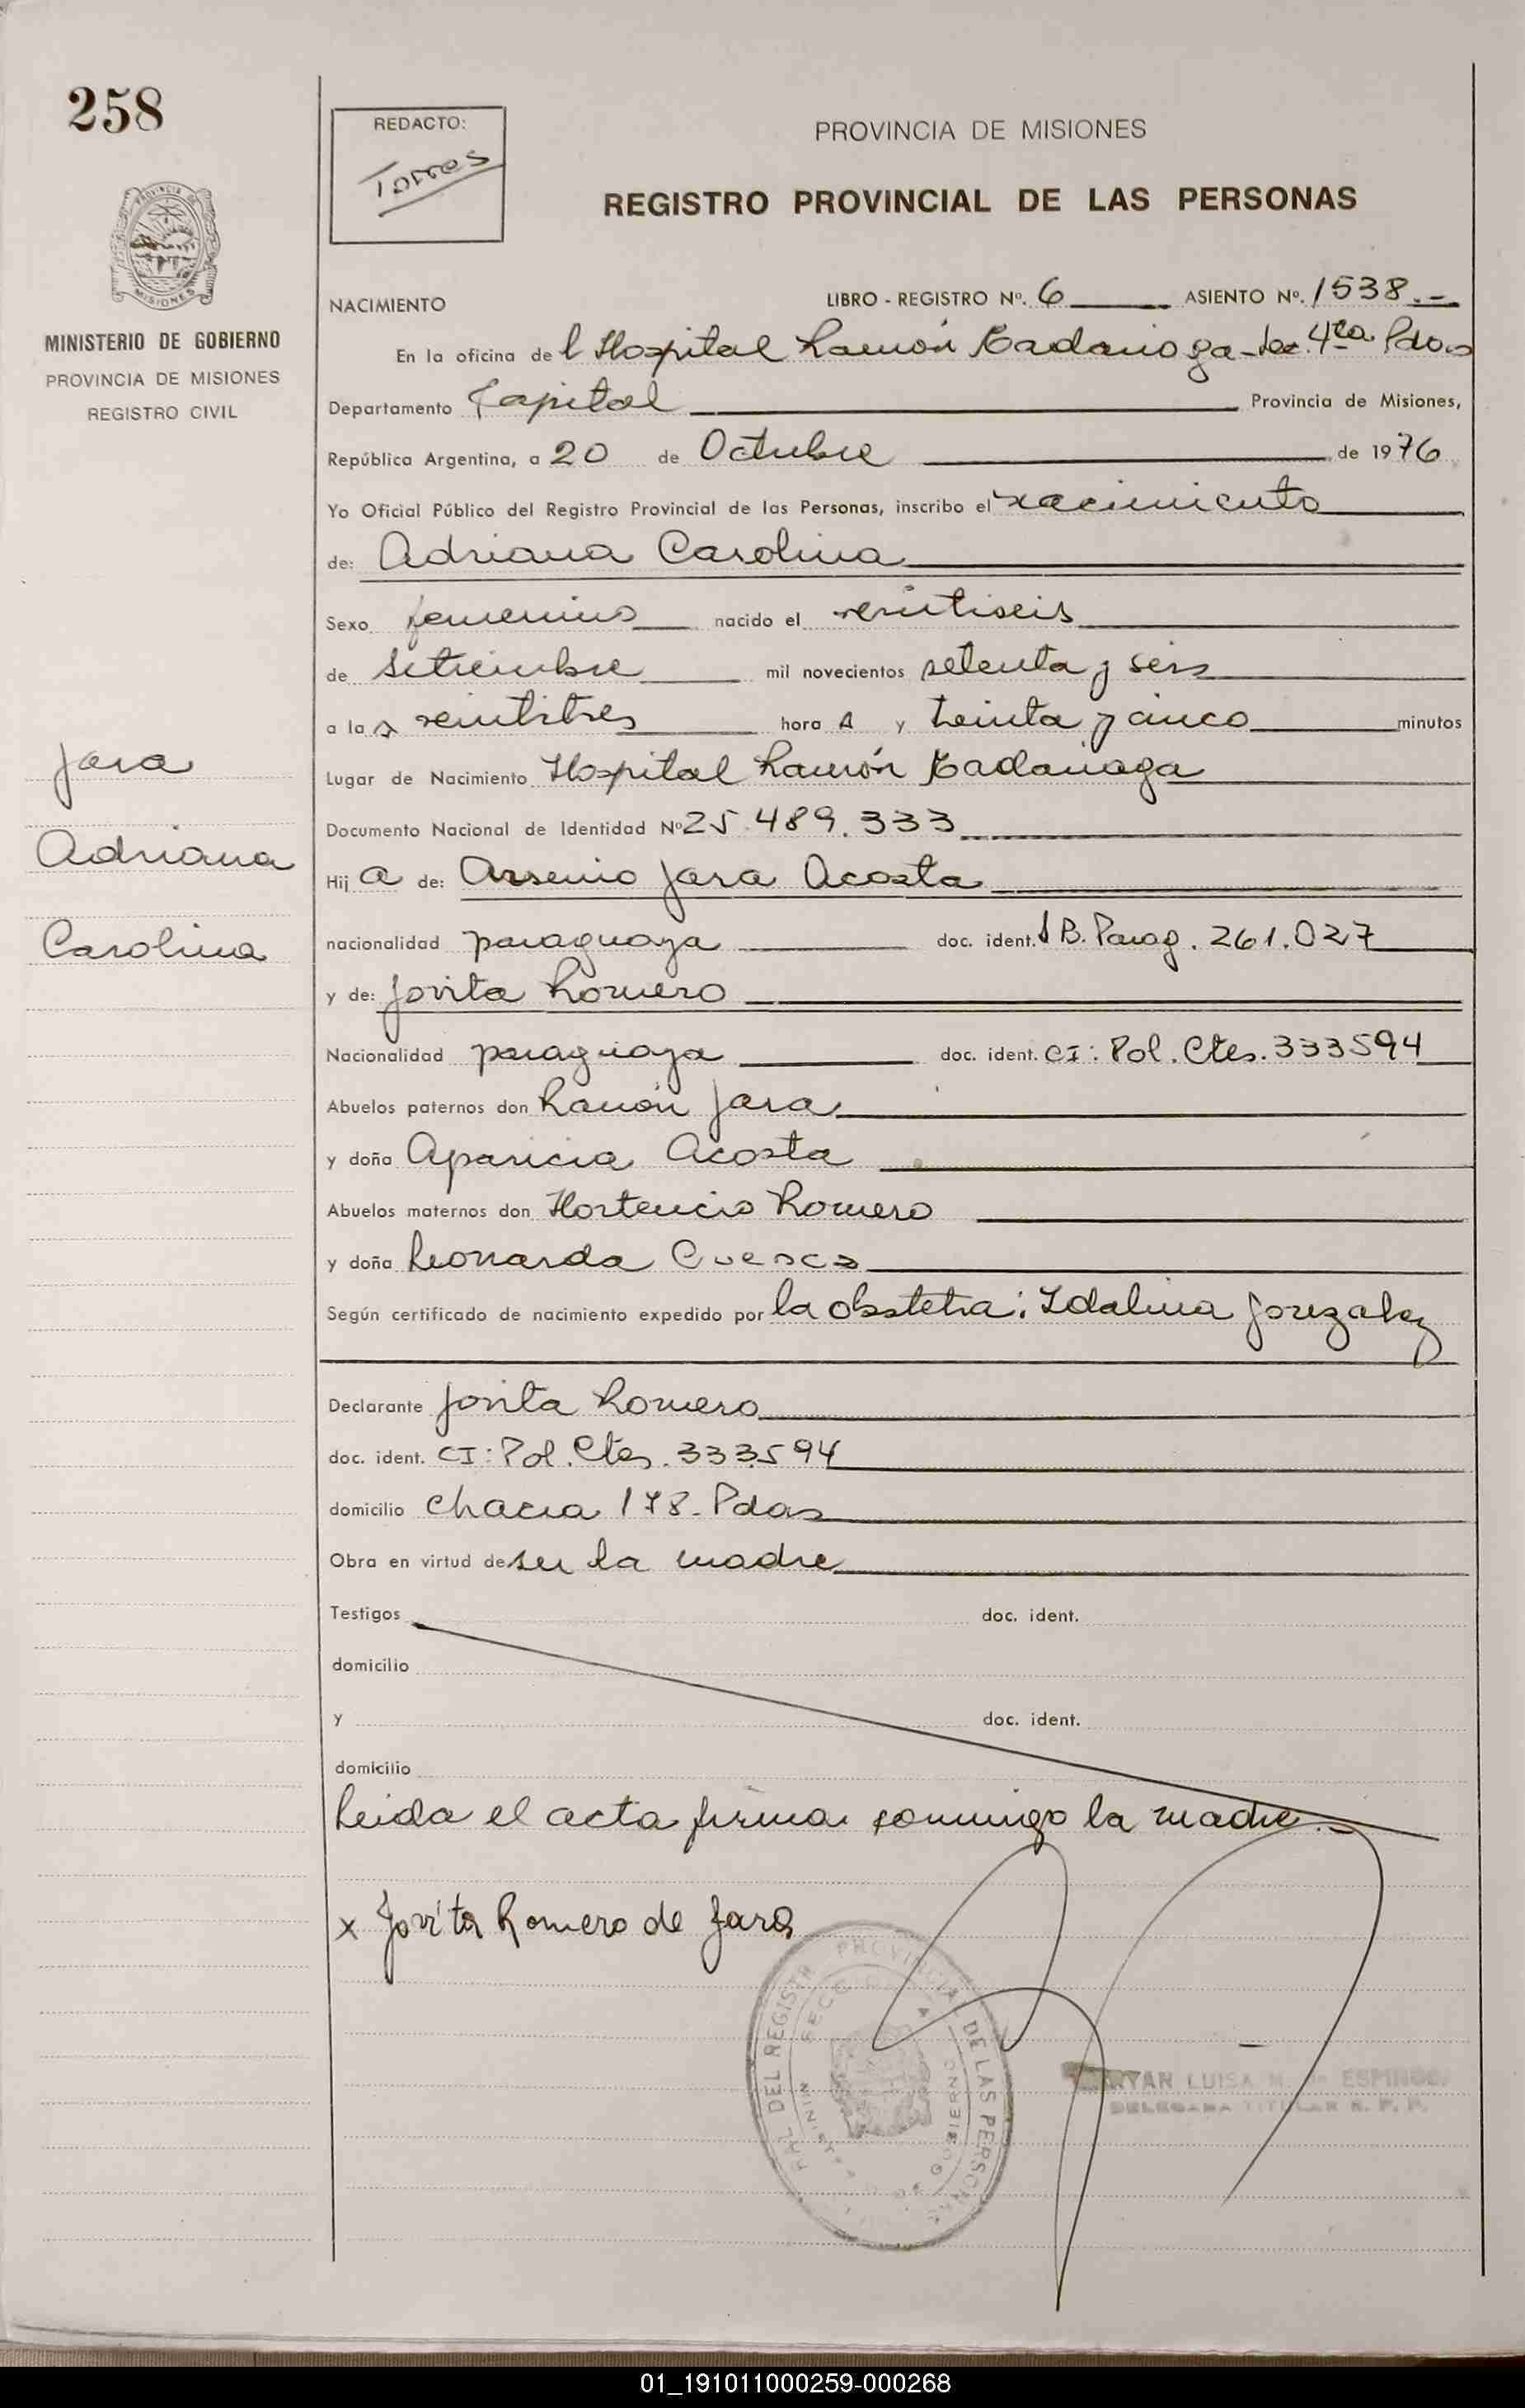 258
REDACTO:
Torres
PROVINCIA DE MISIONES
REGISTRO PROVINCIAL DE LAS PERSONAS
PROVINCIA DE
MISIONES
MINISTERIO DE GOBIERNO
PROVINCIA DE MISIONES
REGISTRO CIVIL
NACIMIENTO LIBRO - REGISTRO Nº. 6 ASIENTO Nº. 1538.-
En la oficina del Hospital Ramón Madariaga - Sec. 4ta Pdas
Departamento Capital Provincia de Misiones,
República Argentina, a 20 de Octubre de 1976
Yo Oficial Público del Registro Provincial de las Personas, inscribo el nacimiento
de: Adriana Carolina
Sexo femenino nacido el veintiseis
de setiembre mil novecientos setenta y seis
a las veintitres horas y treinta y cinco minutos
Lugar de Nacimiento Hospital Ramón Madariaga
Documento Nacional de Identidad Nº 25.489.333
Hija de: Arsenio Jara Acosta
nacionalidad paraguaya doc. ident. B. Parag. 261.027
y de: Jovita Romero
Nacionalidad paraguaya doc. ident. CI: Pol. Ctes. 333594
Abuelos paternos don Ramón Jara
y doña Aparicia Acosta
Abuelos maternos don Hortencio Romero
y doña Leonarda Cuenca
Según certificado de nacimiento expedido por la obstetra: Idalina Gonzalez
Declarante Jovita Romero
doc. ident. CI: Pol. Ctes. 333594
domicilio Chacra 178 - Pdas
Obra en virtud de ser la madre
Testigos doc. ident.
domicilio
y doc. ident.
domicilio
Leida el acta firma conmigo la madre.-
x Jovita Romero de Jara
Jara
Adriana
Carolina
PROVINCIAL DE LAS PERSONAS
DEL REGISTRO
GOBIERNO
LUISA M. DE ESPINOSA
DELEGADA TITULAR R. P. P.
01_191011000259-000268